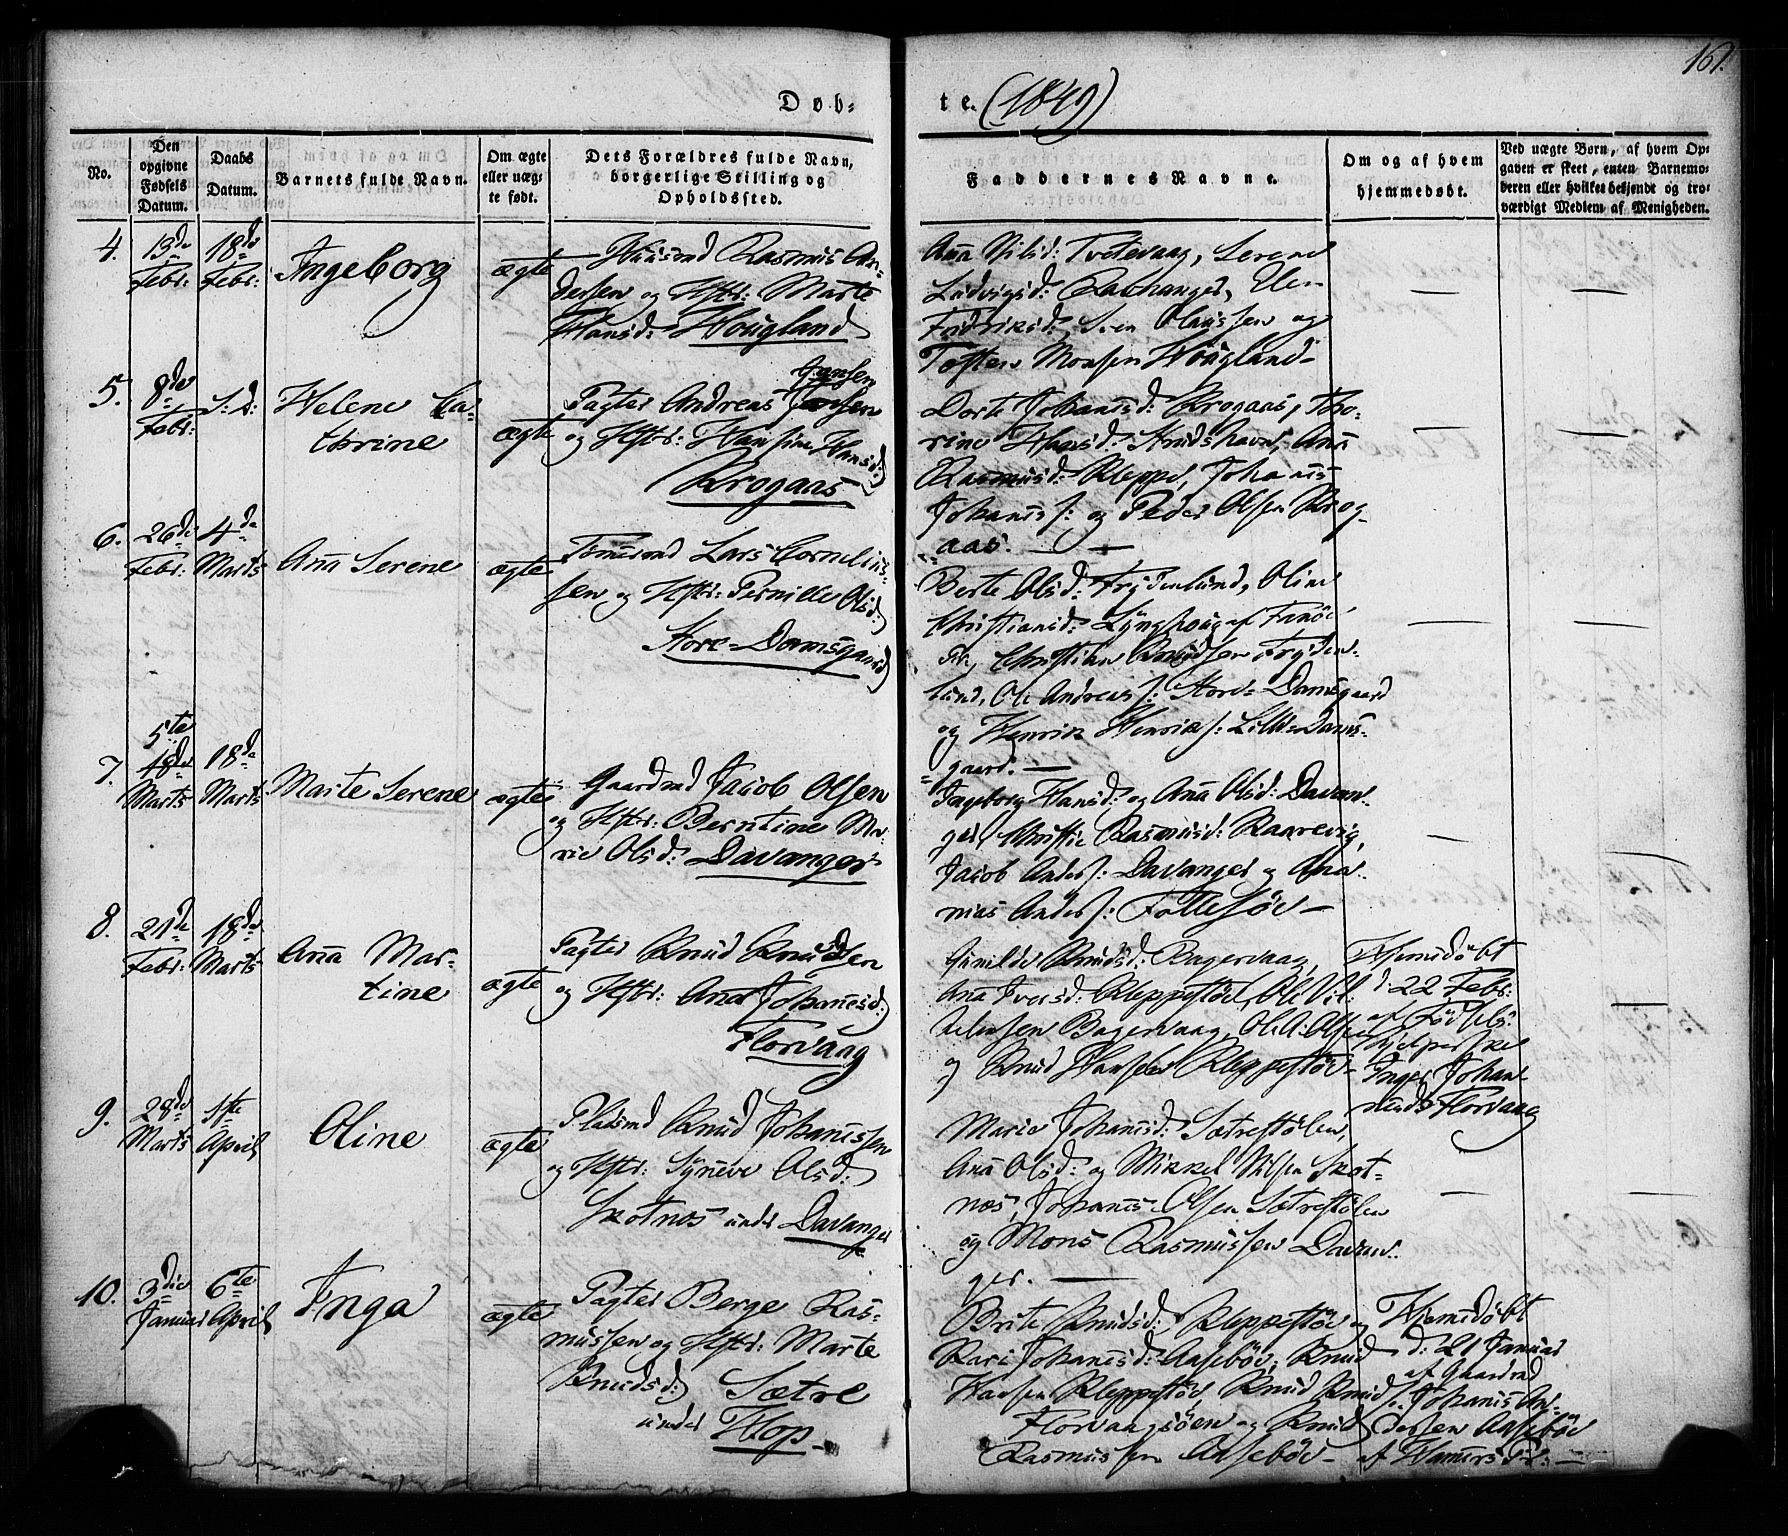 161.
Døb-
te. (1849)
No.
Den opgivne Fødsels Datum.
Daabs Datum.
Barnets fulde Navn.
Om ægte eller uægte født.
Dets Forældres fulde Navn, borgerlige Stilling og Opholdssted.
Faddernes Navne.
Om og af hvem hjemmedøbt.
Ved uægte Børn, af hvem Opgaven er skeet, enten Barnemoderen eller hvilket bekjendt og troværdigt Medlem af Menigheden.
4.
13de Febr:
18de Febr:
Ingeborg
ægte
Huusmd Rasmus An-
dersen og Hstr: Marte
Hansd: Hougland
Ana Nilsd: Tvetevaag, Serene
Ludvigsd: Rathanger, Elen
Fridriksd: Sven Olaussen og
Tosten Monsen Hougland-
5.
8de Febr:
S: D:
Helene Ca-
thrine
ægte
Jansen
Pagter Andreas Jensen
og Hstr: Hansine Hansd:
Krogaas
Dorte Johanisd: Krogaas, Tho-
rine Hansd: Smidshavn, Ana
Rasmusd: Kleppe, Johanis
Johanis s: og Peder Olsen Krog-
aas. —
6.
26de Febr:
4de Marts
Ana Serene
ægte
Tømmermd Lars Cornelius-
sen og Hstr: Pernille Olsd:
Store-Damsgaard
Berte Olsd: Frydenlund, Oline
Christiansd: Lynghoug af Fanøe
Pr, Christian Knudsen Fryden-
lund, Ole Andreas s: Store-Damsgaard
og Henrik Henrik s: Lille-Dams-
gaard. —
7.
5te
18de Marts
18de Marts
Marte Serene
ægte
Gaardmd Jacob Olsen
og Hstr: Berntine Ma-
rie Olsd: Davanger
Ingeborg Hansd: og Ana Olsd: Davan-
ger, Christie Rasmusd: Kaarevig,
Jacob Anders s: Davanger og Ana-
nias Anders s: Follesøe —
8.
21de Febr:
18de Marts
Ana Mar-
tine
ægte
Pagter Knud Knudsen
og Hstr: Ana Johanisd:
Florvaag
Gunilde Knudsd: Bagervaag,
Ana Iversd: Kleppestøe, Ole Vil-
helmsen Bagervaag, Ole A: Olsen
og Knud Hansen Kleppestøe-
Hjemdøbt
d: 22 Febr:
af Fødsels-
hjelperske
Inger Johan-
nesd: Florvaag
9.
28de Marts
1ste April
Oline
ægte
Pladsmd Knud Johanissen
og Hstr: Syneve Olsd:
Skotnes under Davanger
Marie Johanisd: Sætrestølen,
Ana Olsd: og Mikkel Nilsen Skot-
nes, Johanis Olsen Sætrestølen
og Mons Rasmussen Davan-
ger. —
10.
3die Januar
6te April
Inga
ægte
Pagter Berge Ras-
mussen og Hstr: Marte
Knudsd: Sætre
under Hop-
Brite Knudsd: Kleppestøe og
Kari Johanisd: Aasebøe, Knud
Hansen Kleppestøe, Knud Knuds.
Florvaagsøen og Knud
Rasmussen Aasebøe-
Hjemdøbt
d: 21 Januar
af Gaardmd
Johanis An-
dersen Aasebøe
af Hamers Pr: —